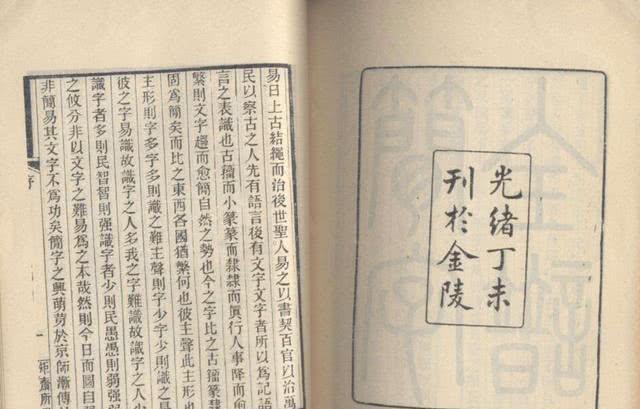 光緒丁未
刊於金陵
易曰上古結繩而治後世聖人易之以書契百官以治萬
民以察古之人先有語言後有文字文字者所以爲記語
言之表識也古籀而小篆篆而隸隸而眞行人事降而
繁則文字趨而愈簡自然之勢也今之字比之古籀篆
固爲簡矣而比之東西各國猶繁何也彼主聲此主形
主形則字多字多則識之難主聲則字少字少則識
彼之字易識故識字之人多我之字難識故識字之人
識字者多則民智智則强識字者少則民愚愚則弱强
之攸分非以文字之難易爲之本哉然則今日而圖自强
非簡易其文字不爲功矣簡字之興萌芽於京師漸傳
序
一
矩齋所